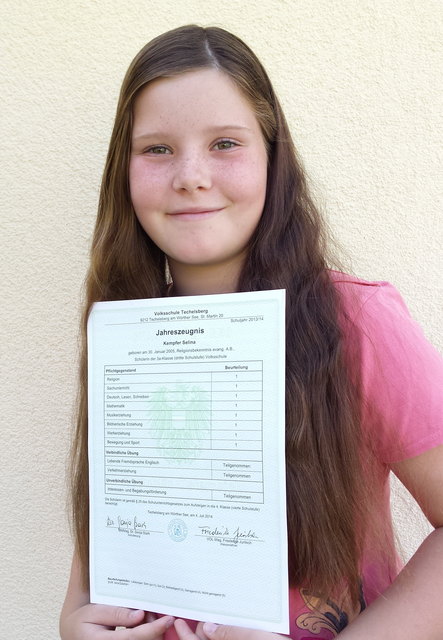 Volksschule Techelsberg
9212 Techelsberg am Wörther See, St. Martin 20
Schuljahr 2013/14
Jahreszeugnis
Kampfer Selina
geboren am 30. Januar 2005, Religionsbekenntnis evang. A.B.,
Schülerin der 3a-Klasse (dritte Schulstufe) Volksschule
Pflichtgegenstand Beurteilung
Religion 1
Sachunterricht 1
Deutsch, Lesen, Schreiben 1
Mathematik 1
Musikerziehung 1
Bildnerische Erziehung 1
Werkerziehung 1
Bewegung und Sport 1
Verbindliche Übung
Lebende Fremdsprache Englisch Teilgenommen
Verkehrserziehung Teilgenommen
Unverbindliche Übung
Interessen- und Begabungsförderung Teilgenommen
Die Schülerin ist gemäß § 25 des Schulunterrichtsgesetzes zum Aufsteigen in die 4. Klasse (vierte Schulstufe)
berechtigt.
Techelsberg am Wörther See, am 4. Juli 2014